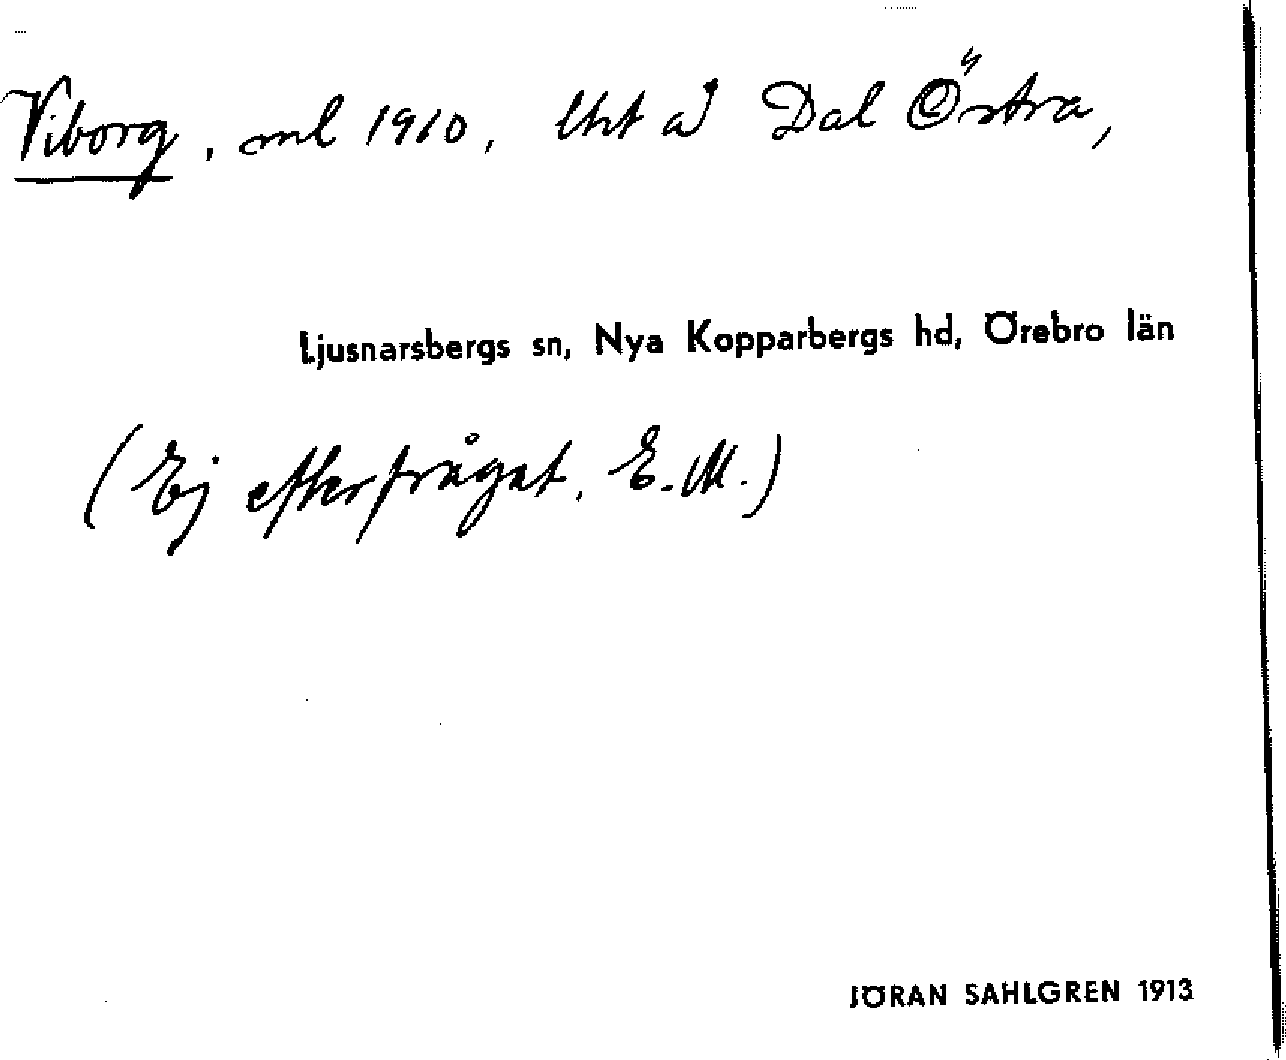 Viborg, ml 1910, lht å Dal Östra,
Ljusnarsbergs sn, Nya Kopparbergs hd, Örebro län
(Ej efterfrågat. E.M.)
JÖRAN SAHLGREN 1913